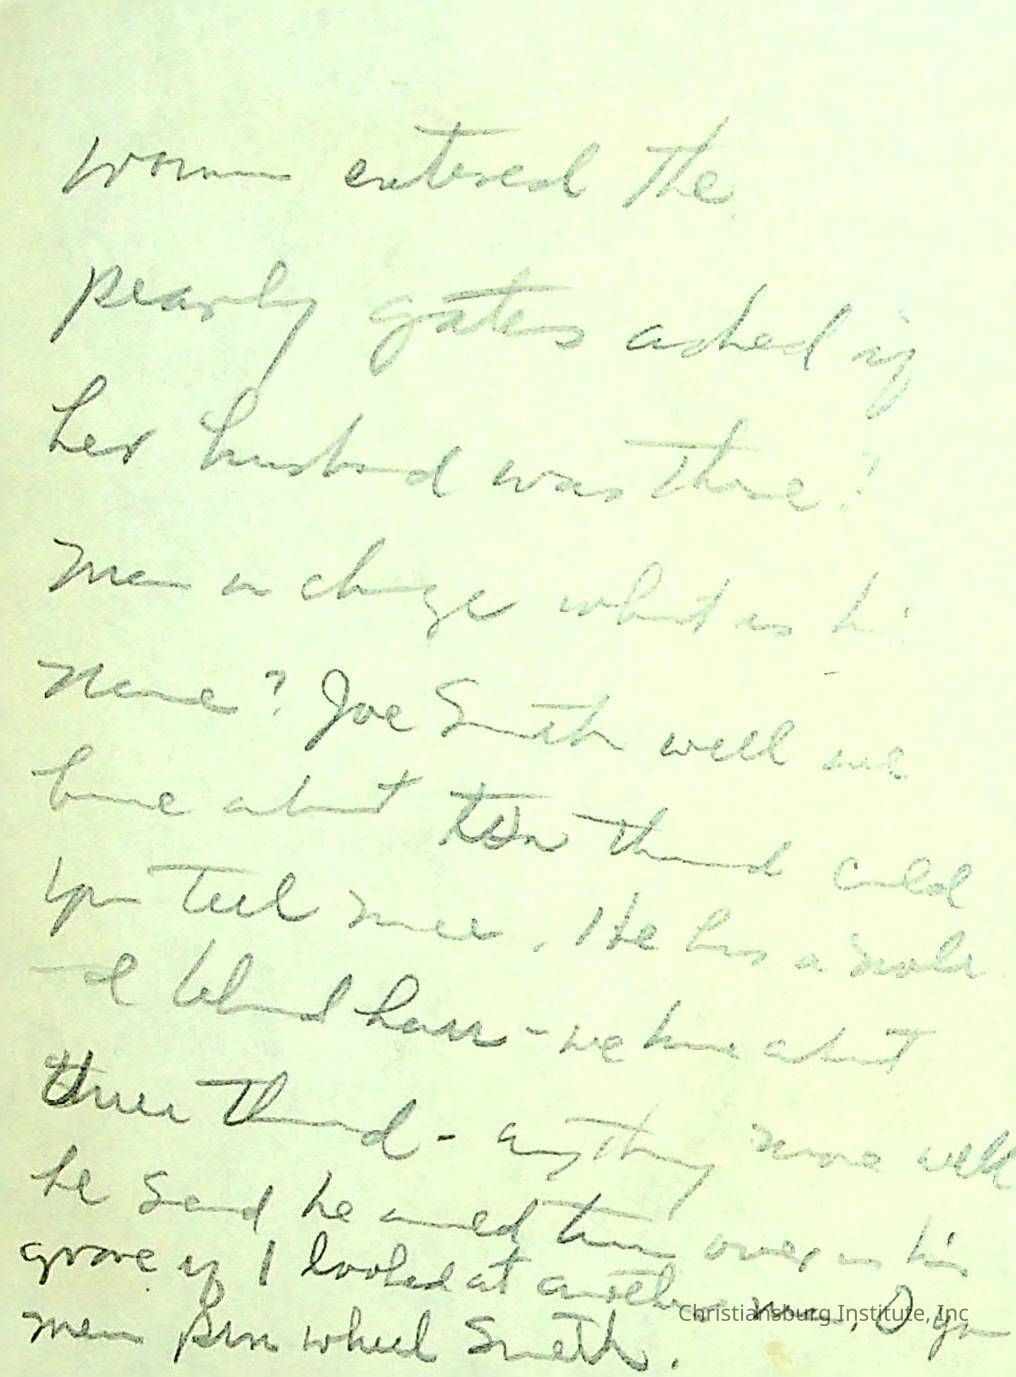 Woman entered the
pearly gates asked if
her husband was there?
Man in charge what is his
Name? Joe Smith well we
have about ten thousand could
you tell more. He has a mole
& blond hair - we have about
three thousand - anything more well
he said he would turn over in his
grave if I looked at another man, O you
mean pin wheel Smith.
Christiansburg Institute, Inc